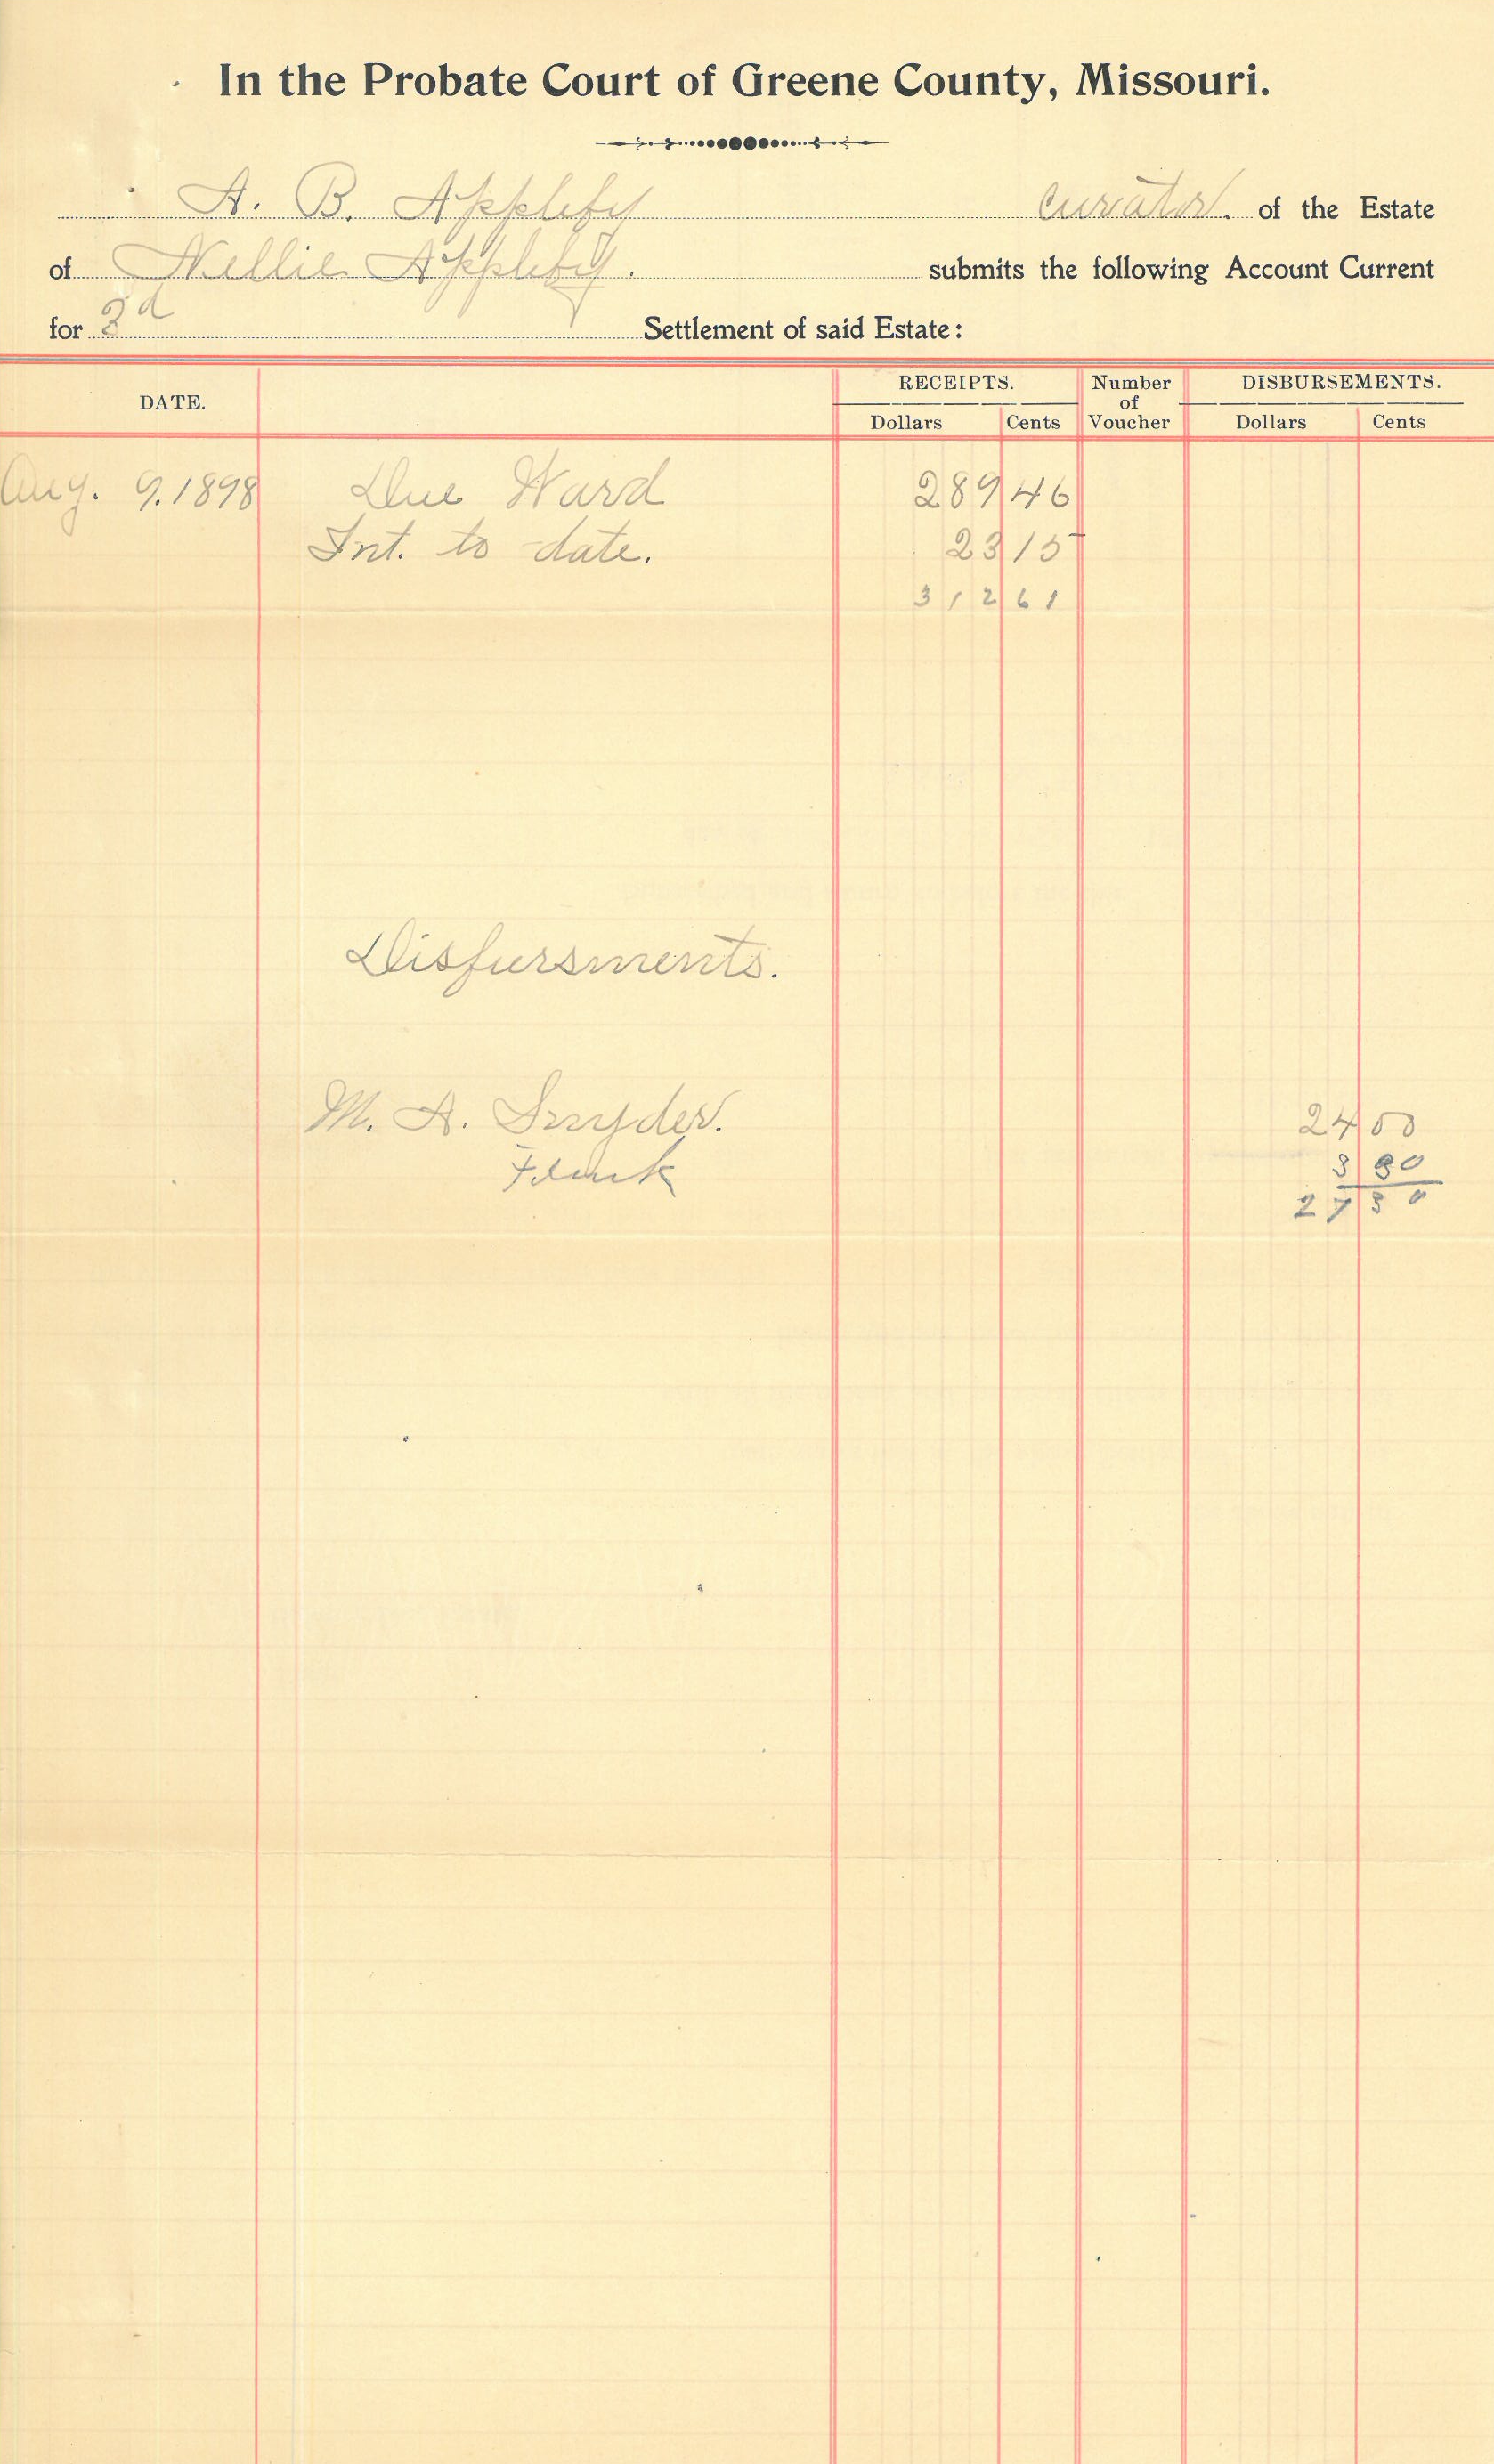 In the Probate Court of Greene County, Missouri.
A. B. Appleby curator. of the Estate
of Nellie Appleby. submits the following Account Current
for 3d Settlement of said Estate:
DATE. RECEIPTS. Number of Voucher DISBURSEMENTS.
Dollars Cents Dollars Cents
Aug. 9. 1898 Due Ward 289 46
Int. to date. 23 15
312 61
Disbursments.
M. A. Snyder. 24 00
3 30
27 30